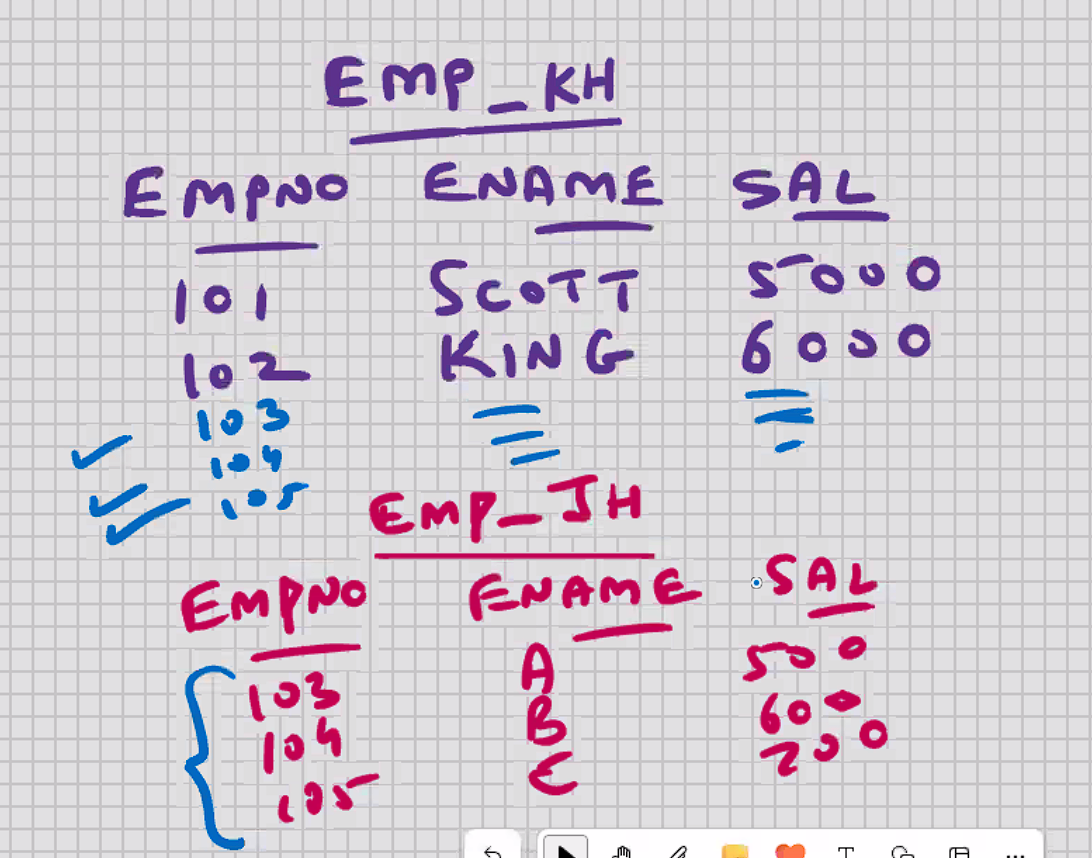 EMP_KH
EMPNO ENAME SAL
101 SCOTT 5000
102 KING 6000
103
104
105
EMP_JH
EMPNO ENAME SAL
103 A 500
104 B 600
105 C 200
T